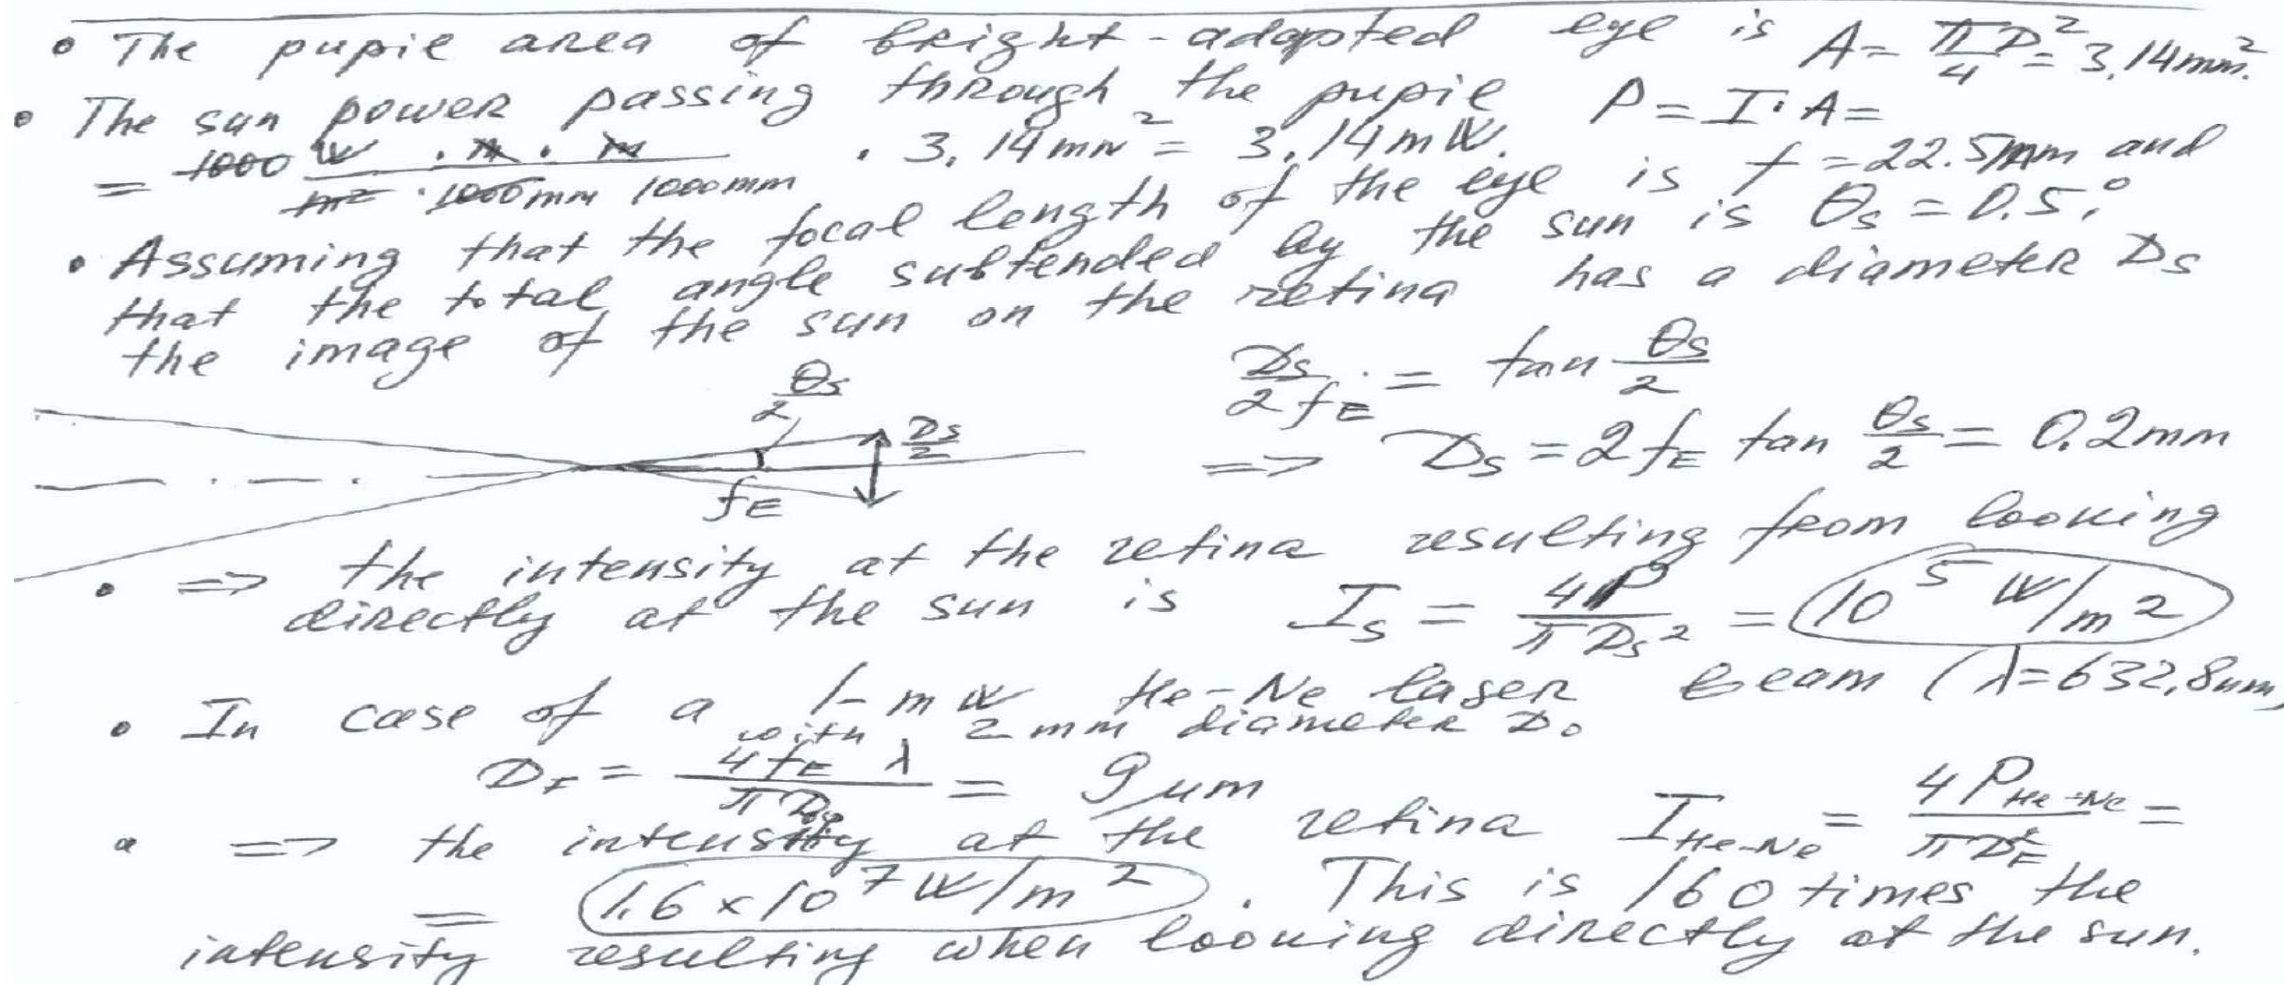 • The pupil area of bright-adapted eye is A = πD²/4 = 3.14mm².
• The sun power passing through the pupil P = I·A =
= 1000 W · m · m / m² · 1000mm 1000mm · 3.14mm² = 3.14mW.
• Assuming that the focal length of the eye is f = 22.5mm and
that the total angle subtended by the sun is θs = 0.5,°
the image of the sun on the retina has a diameter Ds
Ds/2fE = tan θs/2
θs/2
Ds/2
fE
=> Ds = 2fE tan θs/2 = 0.2mm
• => the intensity at the retina resulting from looking
directly at the sun is Is = 4P/πDs² = 10⁵ W/m²
• In case of a 1-mW He-Ne laser beam (λ=632,8nm)
with 2mm diameter Do
DF = 4fE λ/πDo = 9μm
• => the intensity at the retina IHe-Ne = 4PHe-Ne/πD²E =
= 1.6 x 10⁷ W/m². This is 160 times the
intensity resulting when looking directly at the sun.